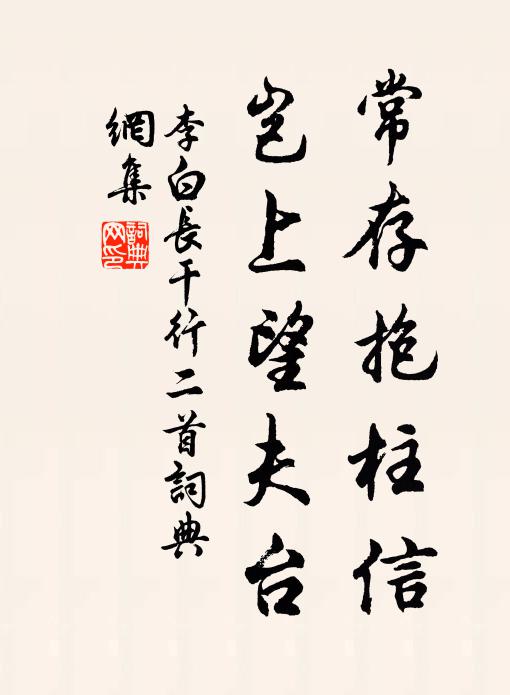 常存抱柱信
豈上望夫台
李白長干行二首詞典
網集
詞典
网印